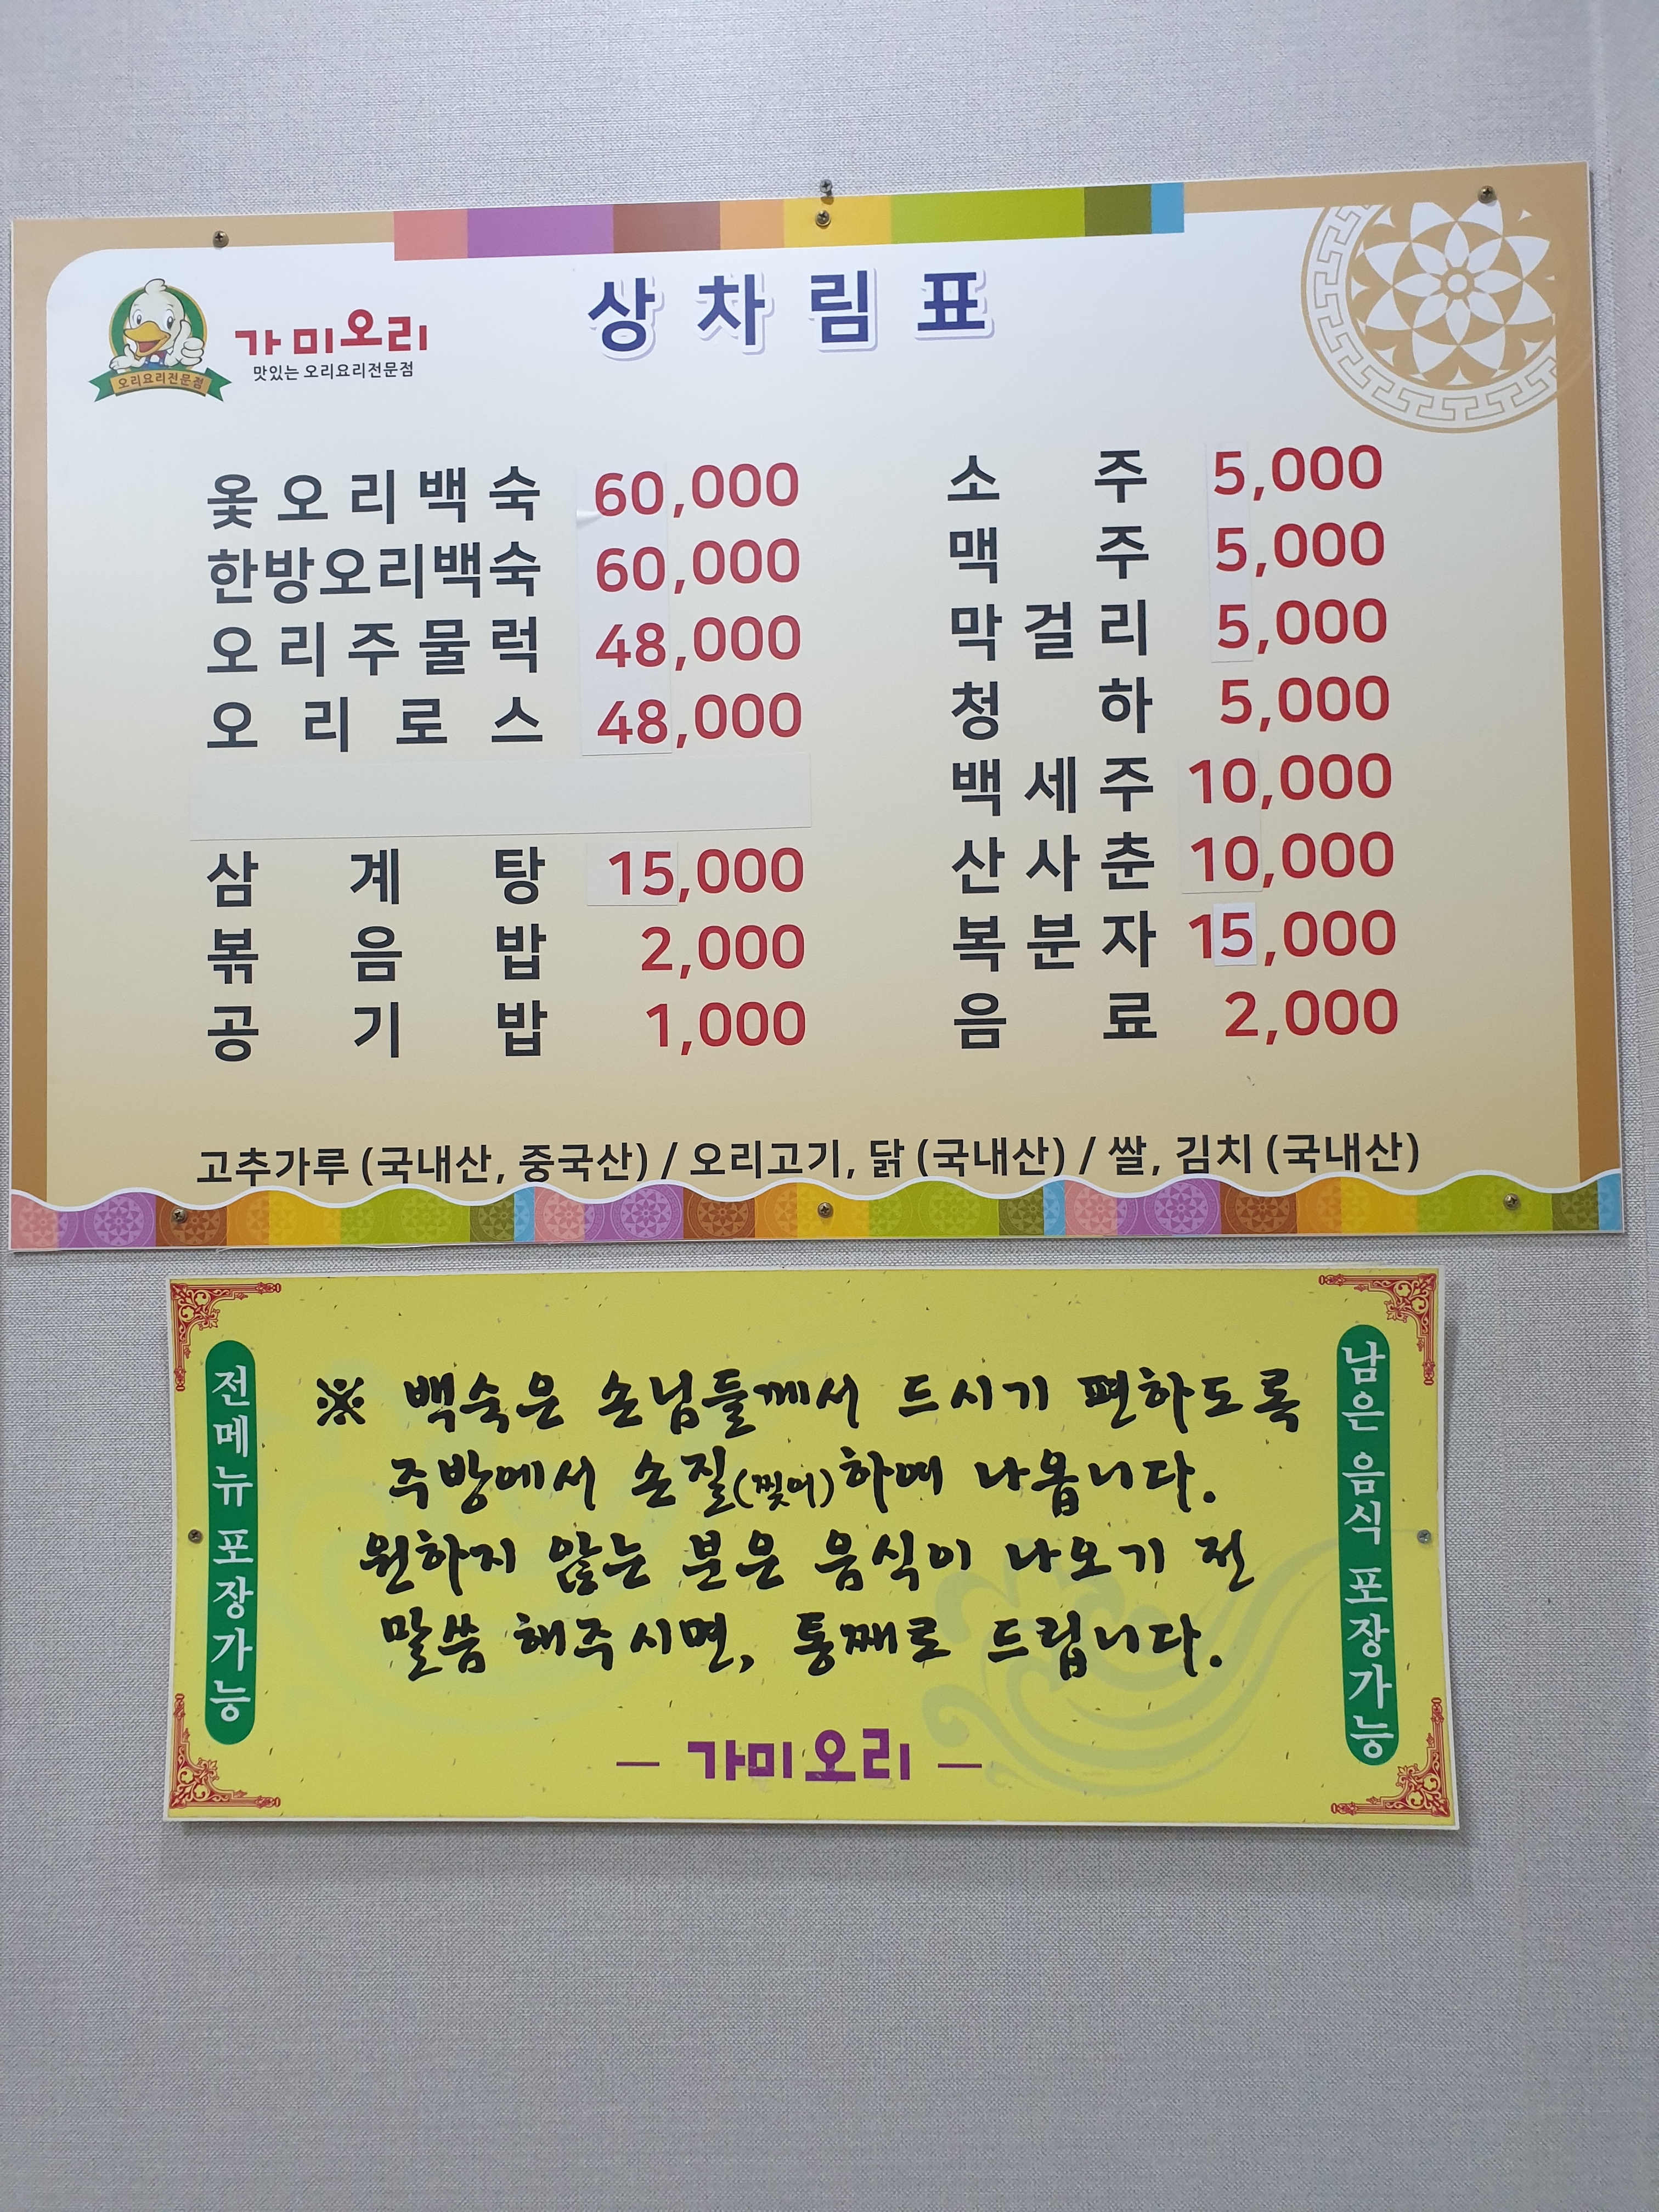 상차림표
오리요리전문점
가미오리
맛있는 오리요리전문점
옻오리백숙 60,000
한방오리백숙 60,000
오리주물럭 48,000
오리로스 48,000
삼계탕 15,000
볶음밥 2,000
공기밥 1,000
소주 5,000
맥주 5,000
막걸리 5,000
청하 5,000
백세주 10,000
산사춘 10,000
복분자 15,000
음료 2,000
고추가루 (국내산, 중국산) / 오리고기, 닭 (국내산) / 쌀, 김치 (국내산)
전메뉴 포장가능
※ 백숙은 손님들께서 드시기 편하도록
주방에서 손질(찢어)하여 나옵니다.
원하지 않는 분은 음식이 나오기 전
말씀 해주시면, 통째로 드립니다.
- 가미오리 -
남은 음식 포장가능